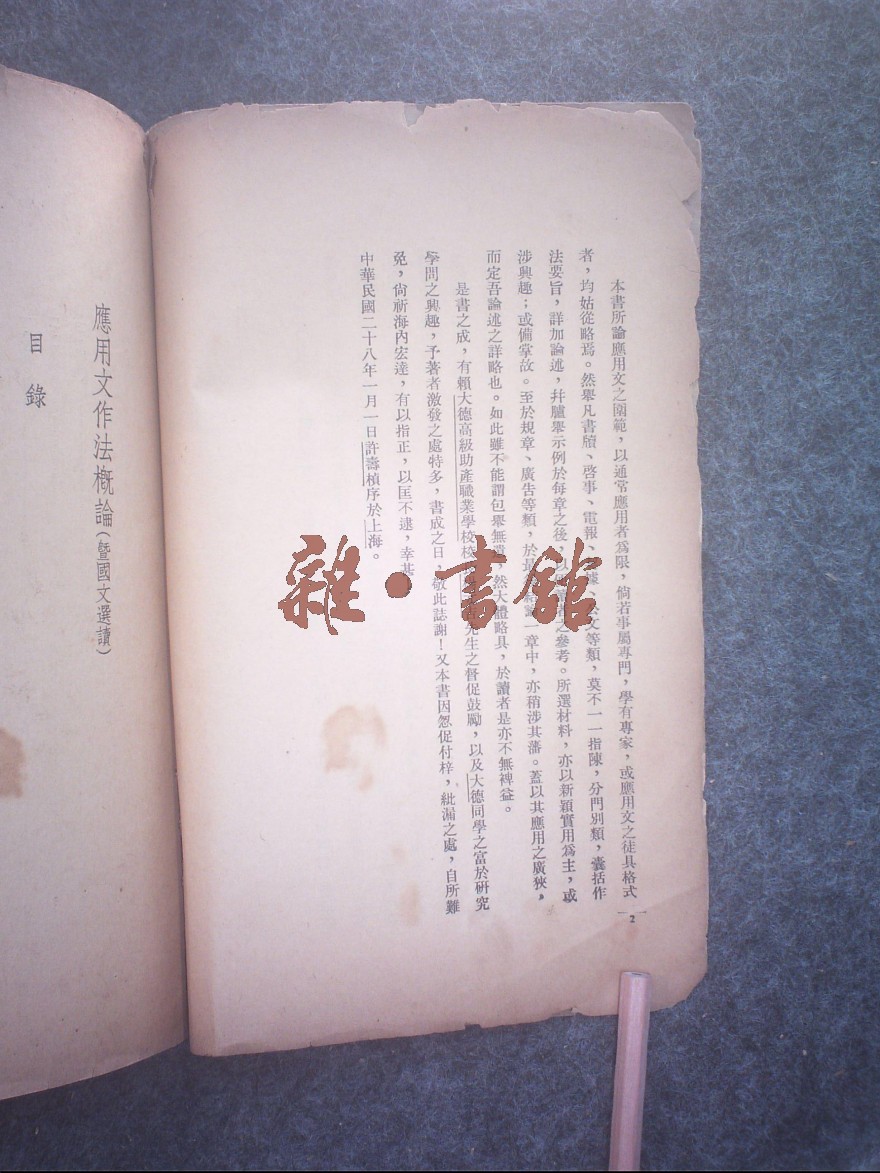 本書所論應用文之圍範，以通常應用者爲限，倘若事屬專門，學有專家，或應用文之徒具格式
者，均姑從略焉。然舉凡書牘、啓事、電報、據、公文等類，莫不一一指陳，分門別類，囊括作
法要旨，詳加論述，幷臚舉示例於每章之後，以參考。所選材料，亦以新穎實用爲主，或
涉興趣；或備掌故。至於規章、廣吿等類，於一章中，亦稍涉其藩。蓋以其應用之廣狹，
而定吾論述之詳略也。如此雖不能謂包舉無遺，然大體略具，於讀者是亦不無裨益。
是書之成，有賴大德高級助產職業學校校先生之督促鼓勵，以及大德同學之富於硏究
學問之興趣，予著者激發之處特多，書成之日，敬此誌謝！又本書因怱促付梓，紕漏之處，自所難
免，尙祈海內宏達，有以指正，以匡不逮，幸甚
中華民國二十八年一月一日許壽楨序於上海。
2
應用文作法槪論（暨國文選讀）
目錄
雜·書館